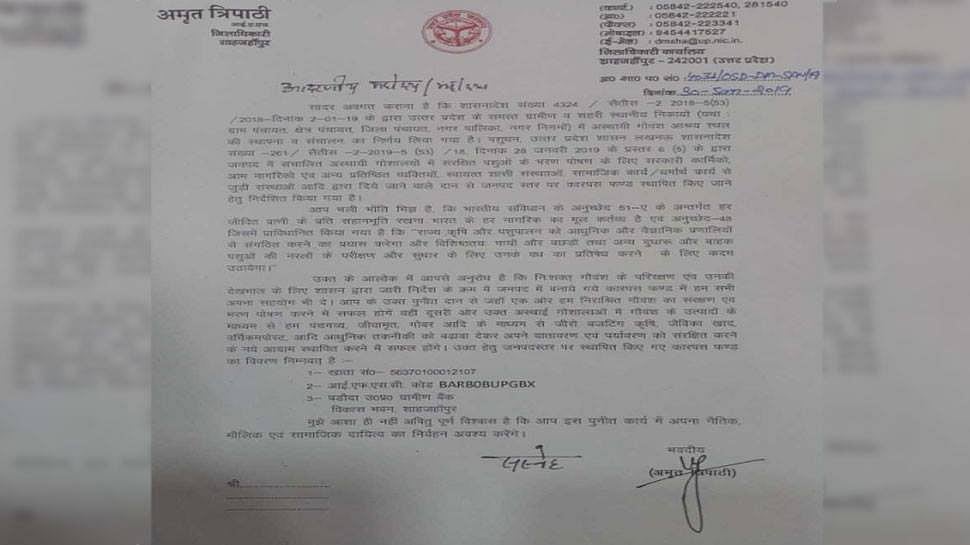 अमृत त्रिपाठी
आई.ए.एस.
जिलाधिकारी
शाहजहाँपुर
(कार्या.) : 05842-222540, 281540
: 05842-222221
(फैक्स) : 05842-223341
(मोबाइल) : 9454417527
(ई-मेल) : dmsha@up.nic.in
जिलाधिकारी कार्यालय
शाहजहाँपुर - 242001 (उत्तर प्रदेश)
अ० शा० प० सं०
दिनांक 30-Jan-2019
आदरणीय महोदय/महोदया
सादर अवगत कराना है कि शासनादेश संख्या 4324 / सैंतीस -2 2018-5(53)
/2018-दिनांक 2-01-19 के द्वारा उत्तर प्रदेश के समस्त ग्रामीण व शहरी स्थानीय निकायों (यथा :
ग्राम पंचायत, क्षेत्र पंचायत, जिला पंचायत, नगर पालिका, नगर निगमों) में अस्थायी गोवंश आश्रय स्थल
की स्थापना व संचालन का निर्णय लिया गया है। पशुधन, उत्तर प्रदेश शासन लखनऊ शासनादेश
संख्या -261/ सैंतीस -2-2019-5 (53) /18, दिनांक 28 जनवरी 2019 के प्रस्तर 6 (5) के द्वारा
जनपद में संचालित अस्थायी गोशालाओं में संरक्षित पशुओं के भरण पोषण के लिए सरकारी कार्मिकों,
आम नागरिकों एवं अन्य प्रतिष्ठित व्यक्तियों, स्वायत्त शासी संस्थाओं, सामाजिक कार्य/धर्मार्थ कार्य से
जुड़ी संस्थाओं आदि द्वारा दिये जाने वाले दान से जनपद स्तर पर कारपस फण्ड स्थापित किए जाने
हेतु निर्देशित किया गया है।
आप भली भाँति भिज्ञ है, कि भारतीय संविधान के अनुच्छेद 51-ए के अन्तर्गत हर
जीवित प्राणी के प्रति सहानभूति रखना भारत के हर नागरिक का मूल कर्तव्य है एवं अनुच्छेद-48
जिसमें प्राविधानित किया गया है कि "राज्य कृषि और पशुपालन को आधुनिक और वैज्ञानिक प्रणालियों
से संगठित करने का प्रयास करेगा और विशिष्टतया गायों और बछड़ो तथा अन्य दुधारू और वाहक
पशुओं की नस्लों के परीक्षण और सुधार के लिए उनके वध का प्रतिषेध करने के लिए कदम
उठायेगा।"
उक्त के आलोक में आपसे अनुरोध है कि निःशक्त गोवंश के परिरक्षण एवं उनकी
देखभाल के लिए शासन द्वारा जारी निर्देश के क्रम में जनपद में बनाये गये कारपस फण्ड में हम सभी
अपना सहयोग भी दे। आप के उक्त पुनीत दान से जहाँ एक ओर हम निराश्रित गोवंश का संरक्षण एवं
भरण पोषण करने में सफल होगें वहीं दूसरी ओर उक्त अस्थाई गोशालाओं में गोवंश के उत्पादों के
माध्यम से हम पंचगव्य, जीवामृत, गोबर आदि के माध्यम से जीरो बजटिंग कृषि, जैविका खाद,
वर्मिकम्पोस्ट, आदि आधुनिक तकनीकी को बढ़ावा देकर अपने वातावरण एवं पर्यावरण को संरक्षित करने
के नये आयाम स्थापित करने में सफल होंगे। उक्त हेतु जनपदस्तर पर स्थापित किए गए कारपस फण्ड
का विवरण निम्नवत् है :-
1- खाता सं० - 56370100012107
2- आई.एफ.एस.सी. कोड BARB0BUPGBX
3- बडौदा उ०प्र० ग्रामीण बैंक
विकास भवन, शाहजहाँपुर
मुझे आशा ही नहीं अपितु पूर्ण विश्वास है कि आप इस पुनीत कार्य में अपना नैतिक,
मौलिक एवं सामाजिक दायित्व का निर्वहन अवश्य करेंगे।
भवदीय
(अमृत त्रिपाठी)
श्री